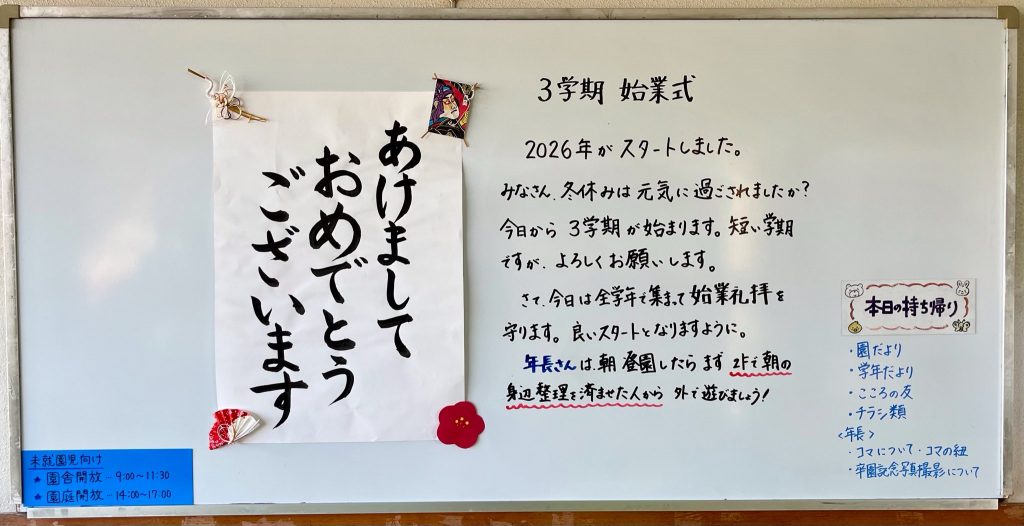 あけまして
おめでとう
ございます
3学期 始業式
2026年が スタートしました。
みなさん、冬休みは 元気に 過ごされましたか?
今日から 3学期が始まります。短い学期
ですが、よろしくお願いします。
さて、今日は全学年で集まって始業礼拝を
守ります。良いスタートとなりますように。
年長さんは、朝 登園したら まず 2Fで朝の
身辺整理を済ませた人から 外で遊びましょう!
本日の持ち帰り
・園だより
・学年だより
・こころの友
・チラシ類
<年長>
・コマについて・コマの紐
・卒園記念写真撮影について
未就園児向け
★ 園舎開放…9:00〜11:30
★ 園庭開放…14:00〜17:00